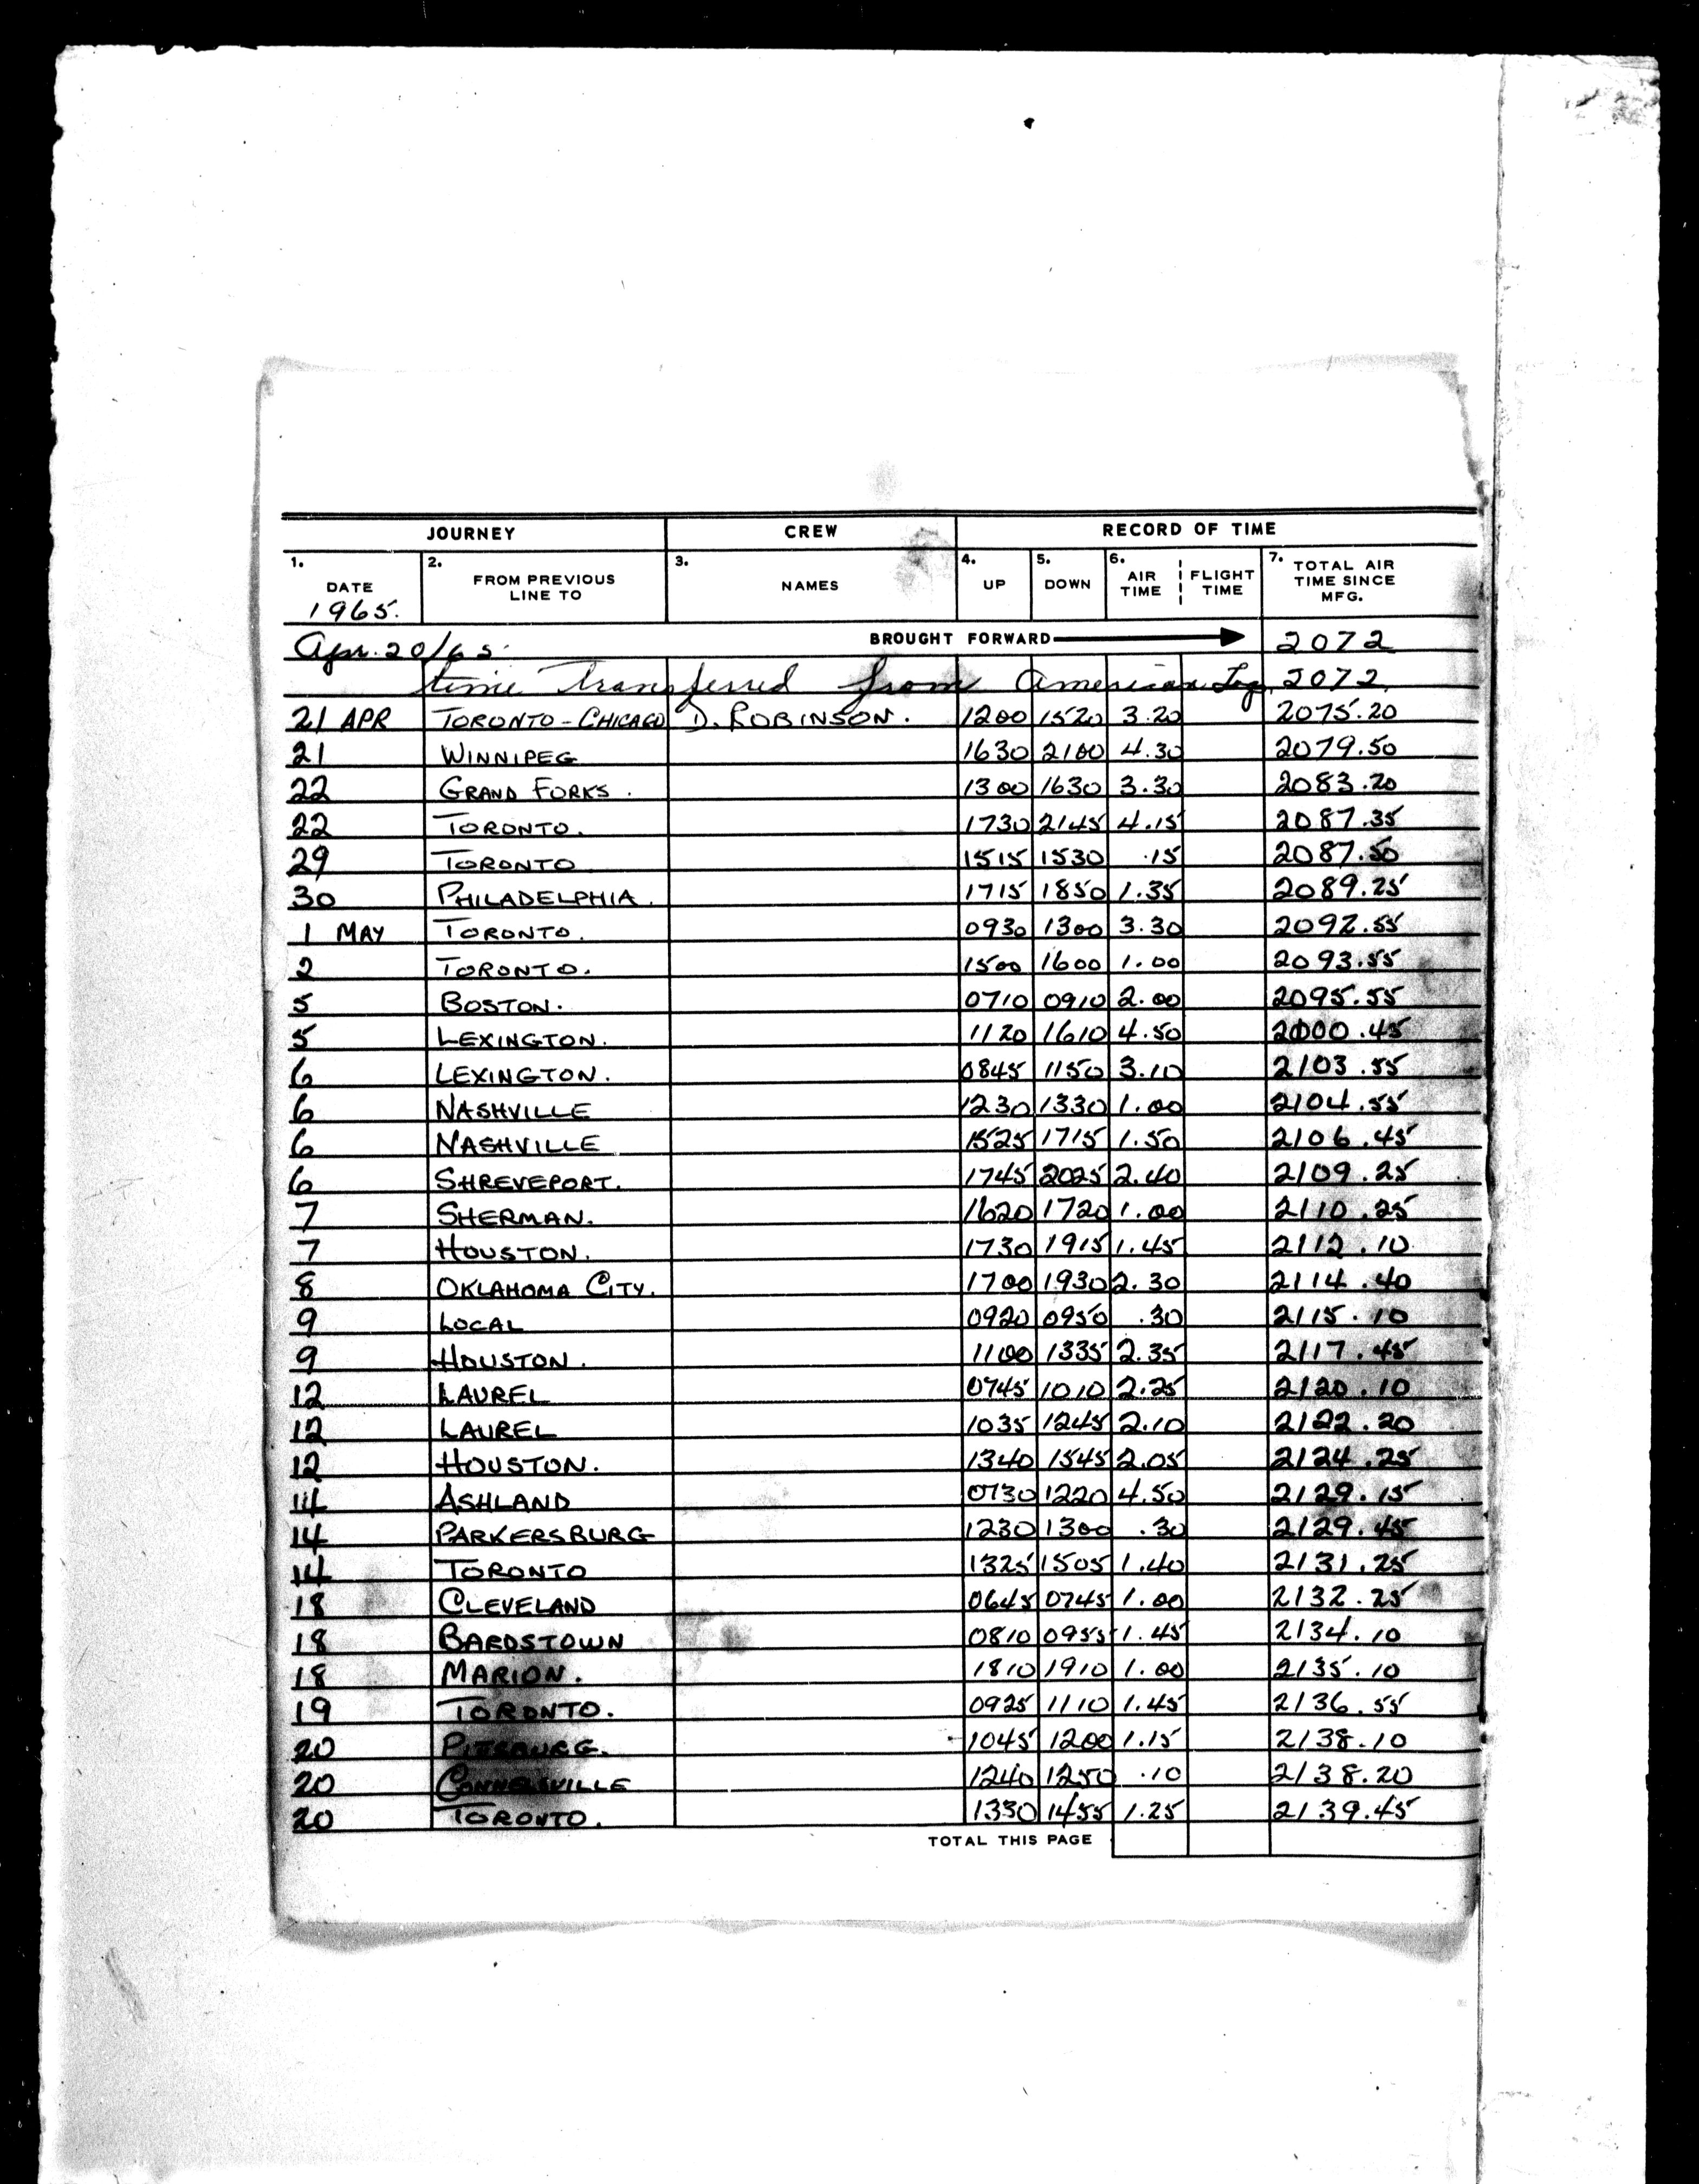 JOURNEY CREW RECORD OF TIME
1. DATE 2. FROM PREVIOUS LINE TO 3. NAMES 4. UP 5. DOWN 6. AIR TIME FLIGHT TIME 7. TOTAL AIR TIME SINCE MFG.
1965.
Apr. 20/65. BROUGHT FORWARD 2072
time transferred from American Log 2072
21 APR TORONTO - CHICAGO D. ROBINSON. 1200 1520 3.20 2075.20
21 WINNIPEG 1630 2100 4.30 2079.50
22 GRAND FORKS. 1300 1630 3.30 2083.20
22 TORONTO. 1730 2145 4.15 2087.35
29 TORONTO 1515 1530 .15 2087.50
30 PHILADELPHIA. 1715 1850 1.35 2089.25
1 MAY TORONTO. 0930 1300 3.30 2092.55
2 TORONTO. 1500 1600 1.00 2093.55
5 BOSTON. 0710 0910 2.00 2095.55
5 LEXINGTON. 1120 1610 4.50 2000.45
6 LEXINGTON. 0845 1150 3.10 2103.55
6 NASHVILLE 1230 1330 1.00 2104.55
6 NASHVILLE 1525 1715 1.50 2106.45
6 SHREVEPORT. 1745 2025 2.40 2109.25
7 SHERMAN. 1620 1720 1.00 2110.25
7 HOUSTON. 1730 1915 1.45 2112.10
8 OKLAHOMA CITY. 1700 1930 2.30 2114.40
9 LOCAL 0920 0950 .30 2115.10
9 HOUSTON. 1100 1335 2.35 2117.45
12 LAUREL 0745 1010 2.25 2120.10
12 LAUREL 1035 1245 2.10 2122.20
12 HOUSTON. 1340 1545 2.05 2124.25
14 ASHLAND 0730 1220 4.50 2129.15
14 PARKERSBURG 1230 1300 .30 2129.45
14 TORONTO 1325 1505 1.40 2131.25
18 CLEVELAND 0645 0745 1.00 2132.25
18 BARDSTOWN 0810 0955 1.45 2134.10
18 MARION. 1810 1910 1.00 2135.10
19 TORONTO. 0925 1110 1.45 2136.55
20 PITTSBURG. 1045 1200 1.15 2138.10
20 CONNELSVILLE 1240 1250 .10 2138.20
20 TORONTO. 1330 1455 1.25 2139.45
TOTAL THIS PAGE